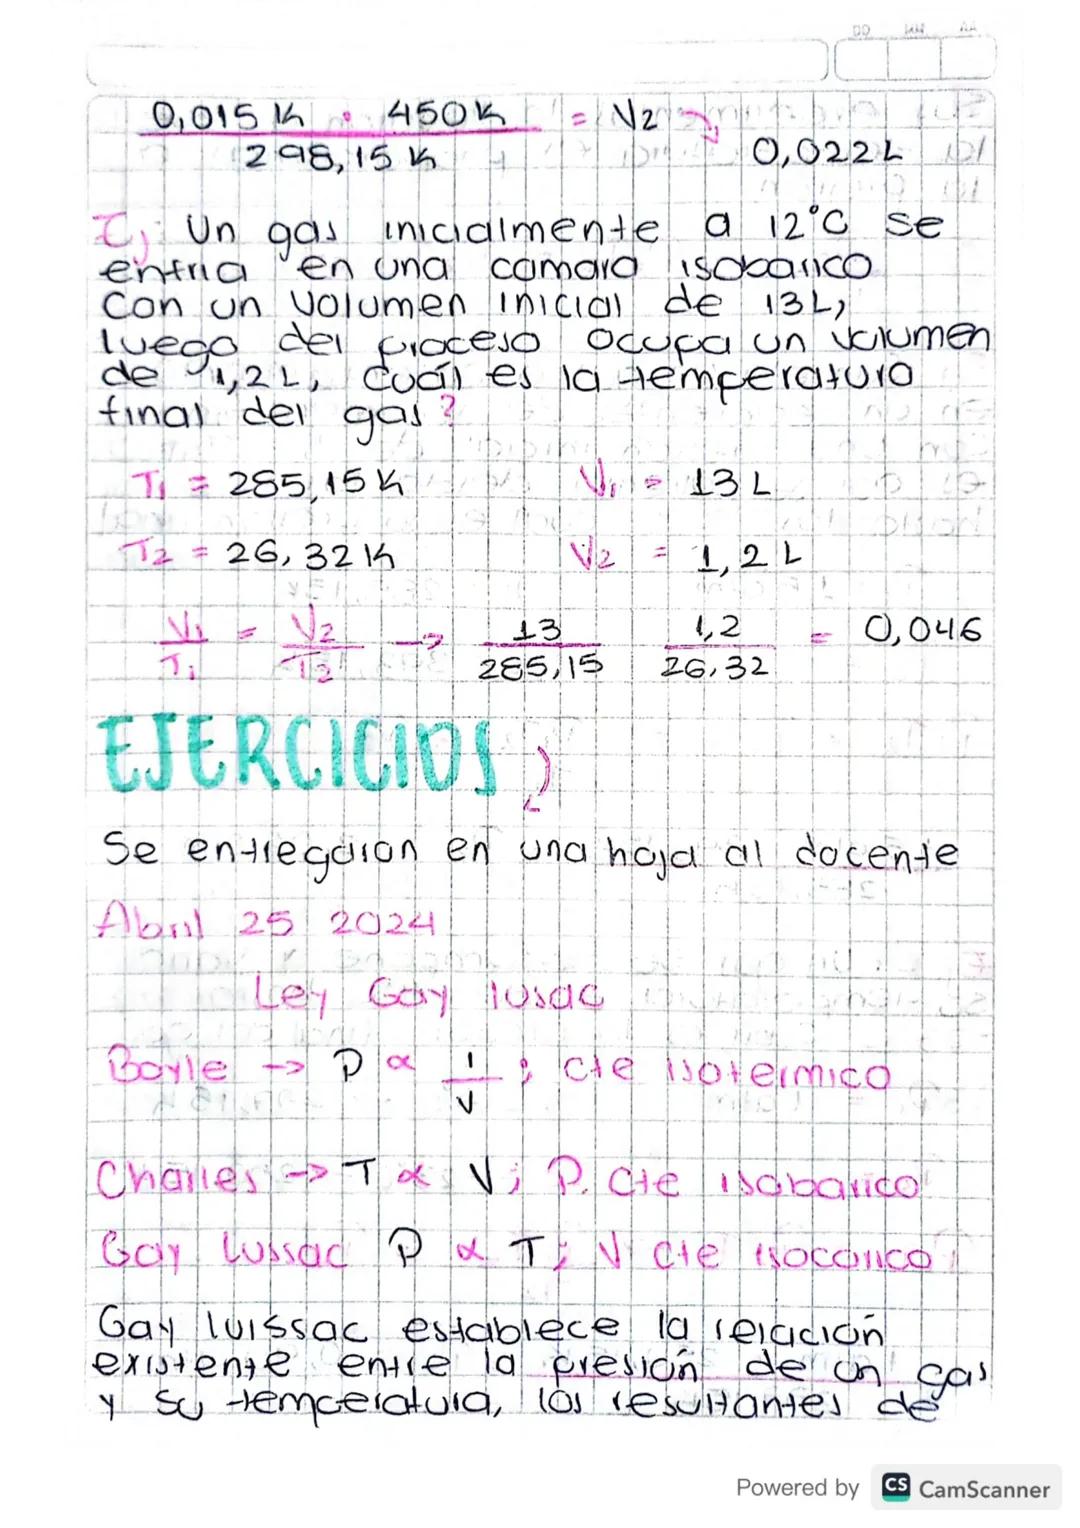 DD MM AA
0,015 K · 450 K = V2
298,15 K 0,022 L
I, Un gas inicialmente a 12°C se
enfria en una camara isobarico
Con un volumen inicial de 13L,
luego del proceso ocupa un volumen
de 1,2 L, Cuál es la temperatura
final del gas?
T1 = 285,15 K V1 = 13 L
T2 = 26,32 K V2 = 1,2 L
V1 = V2 → 13 1,2 = 0,046
T1 T2 285,15 26,32
EJERCICIOS
Se entregaron en una hoja al docente
Abril 25 2024
Ley Gay lusac
Boyle → P ∝ 1 ; cte isotermico
V
Charles → T ∝ V; P. Cte isobarico
Gay Lussac P ∝ T; V cte isocorico
Gay luissac establece la relación
existente entre la presión de un gas
y su temperatura, los resultantes de
Powered by CS CamScanner